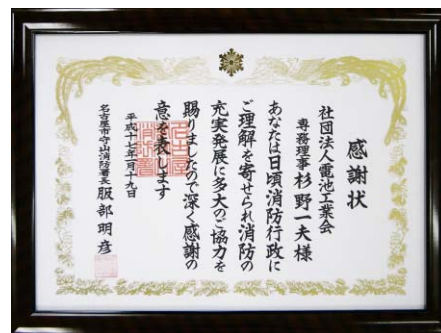 感謝状
社団法人電池工業会
専務理事 杉野一夫様
あなたは日頃消防行政に
ご理解を寄せられ消防の
充実発展に多大のご協力を
賜りましたので深く感謝の
意を表します
平成十七年一月十九日
名古屋市守山消防署長 服部明彦